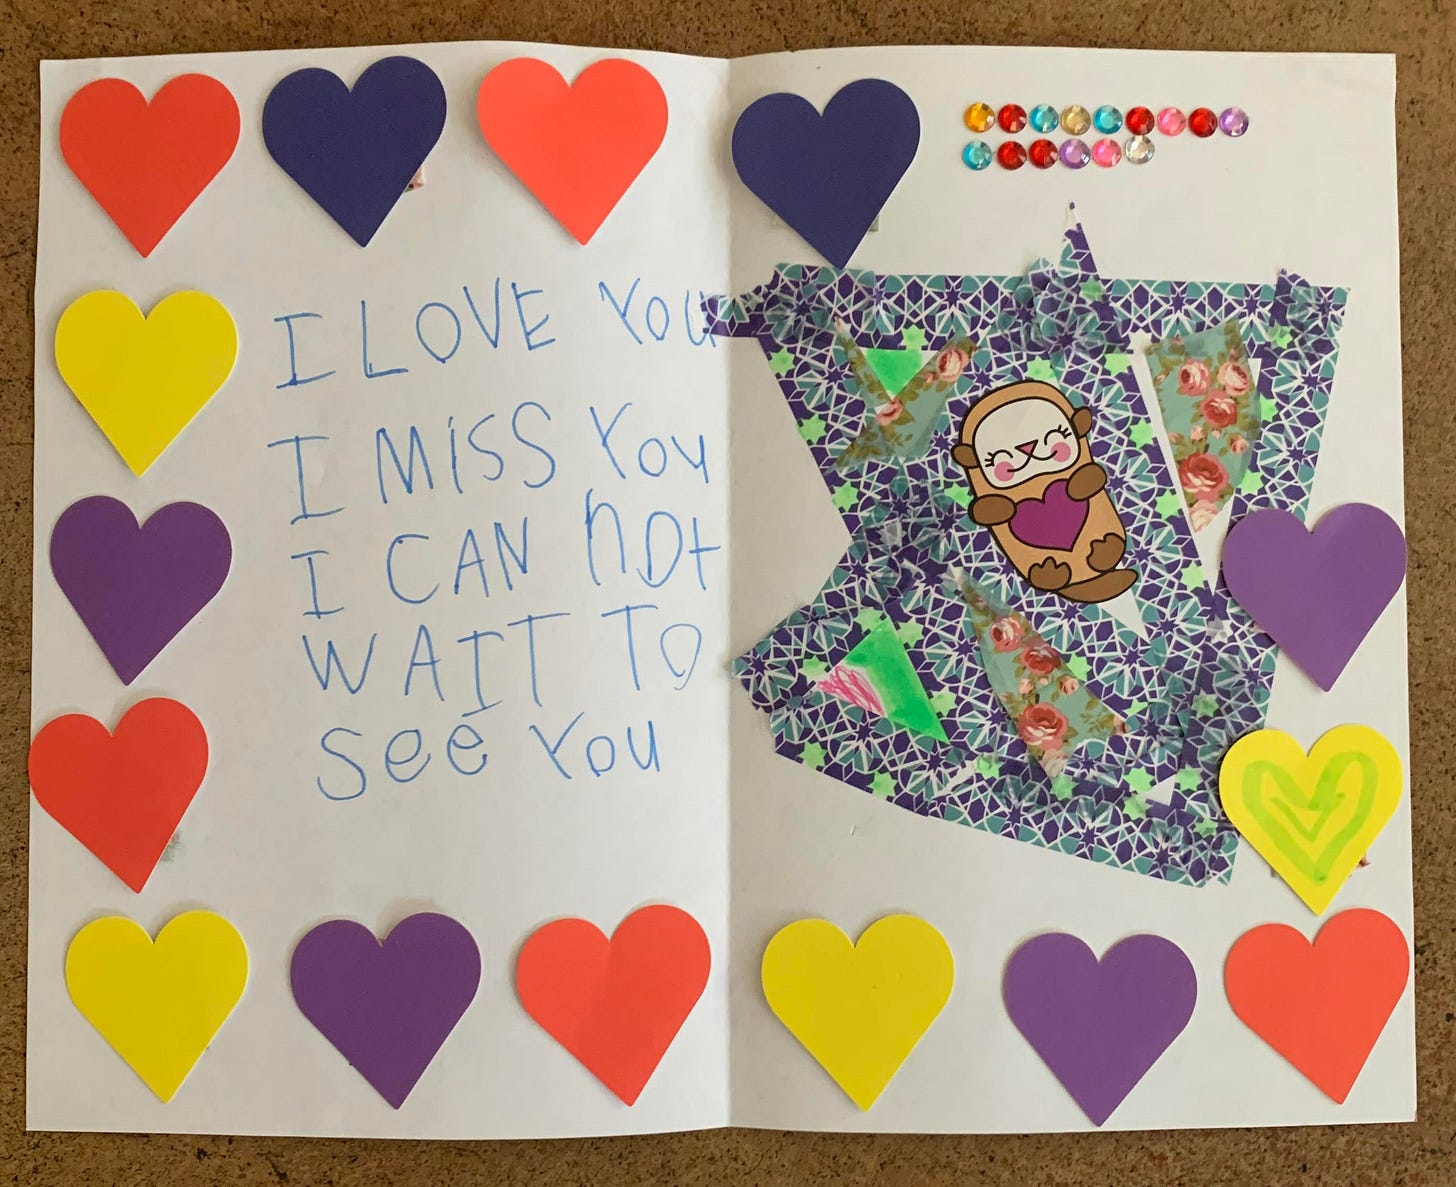 I LOVE You
I MISS You
I CAN nOt
WAIT TO
See You